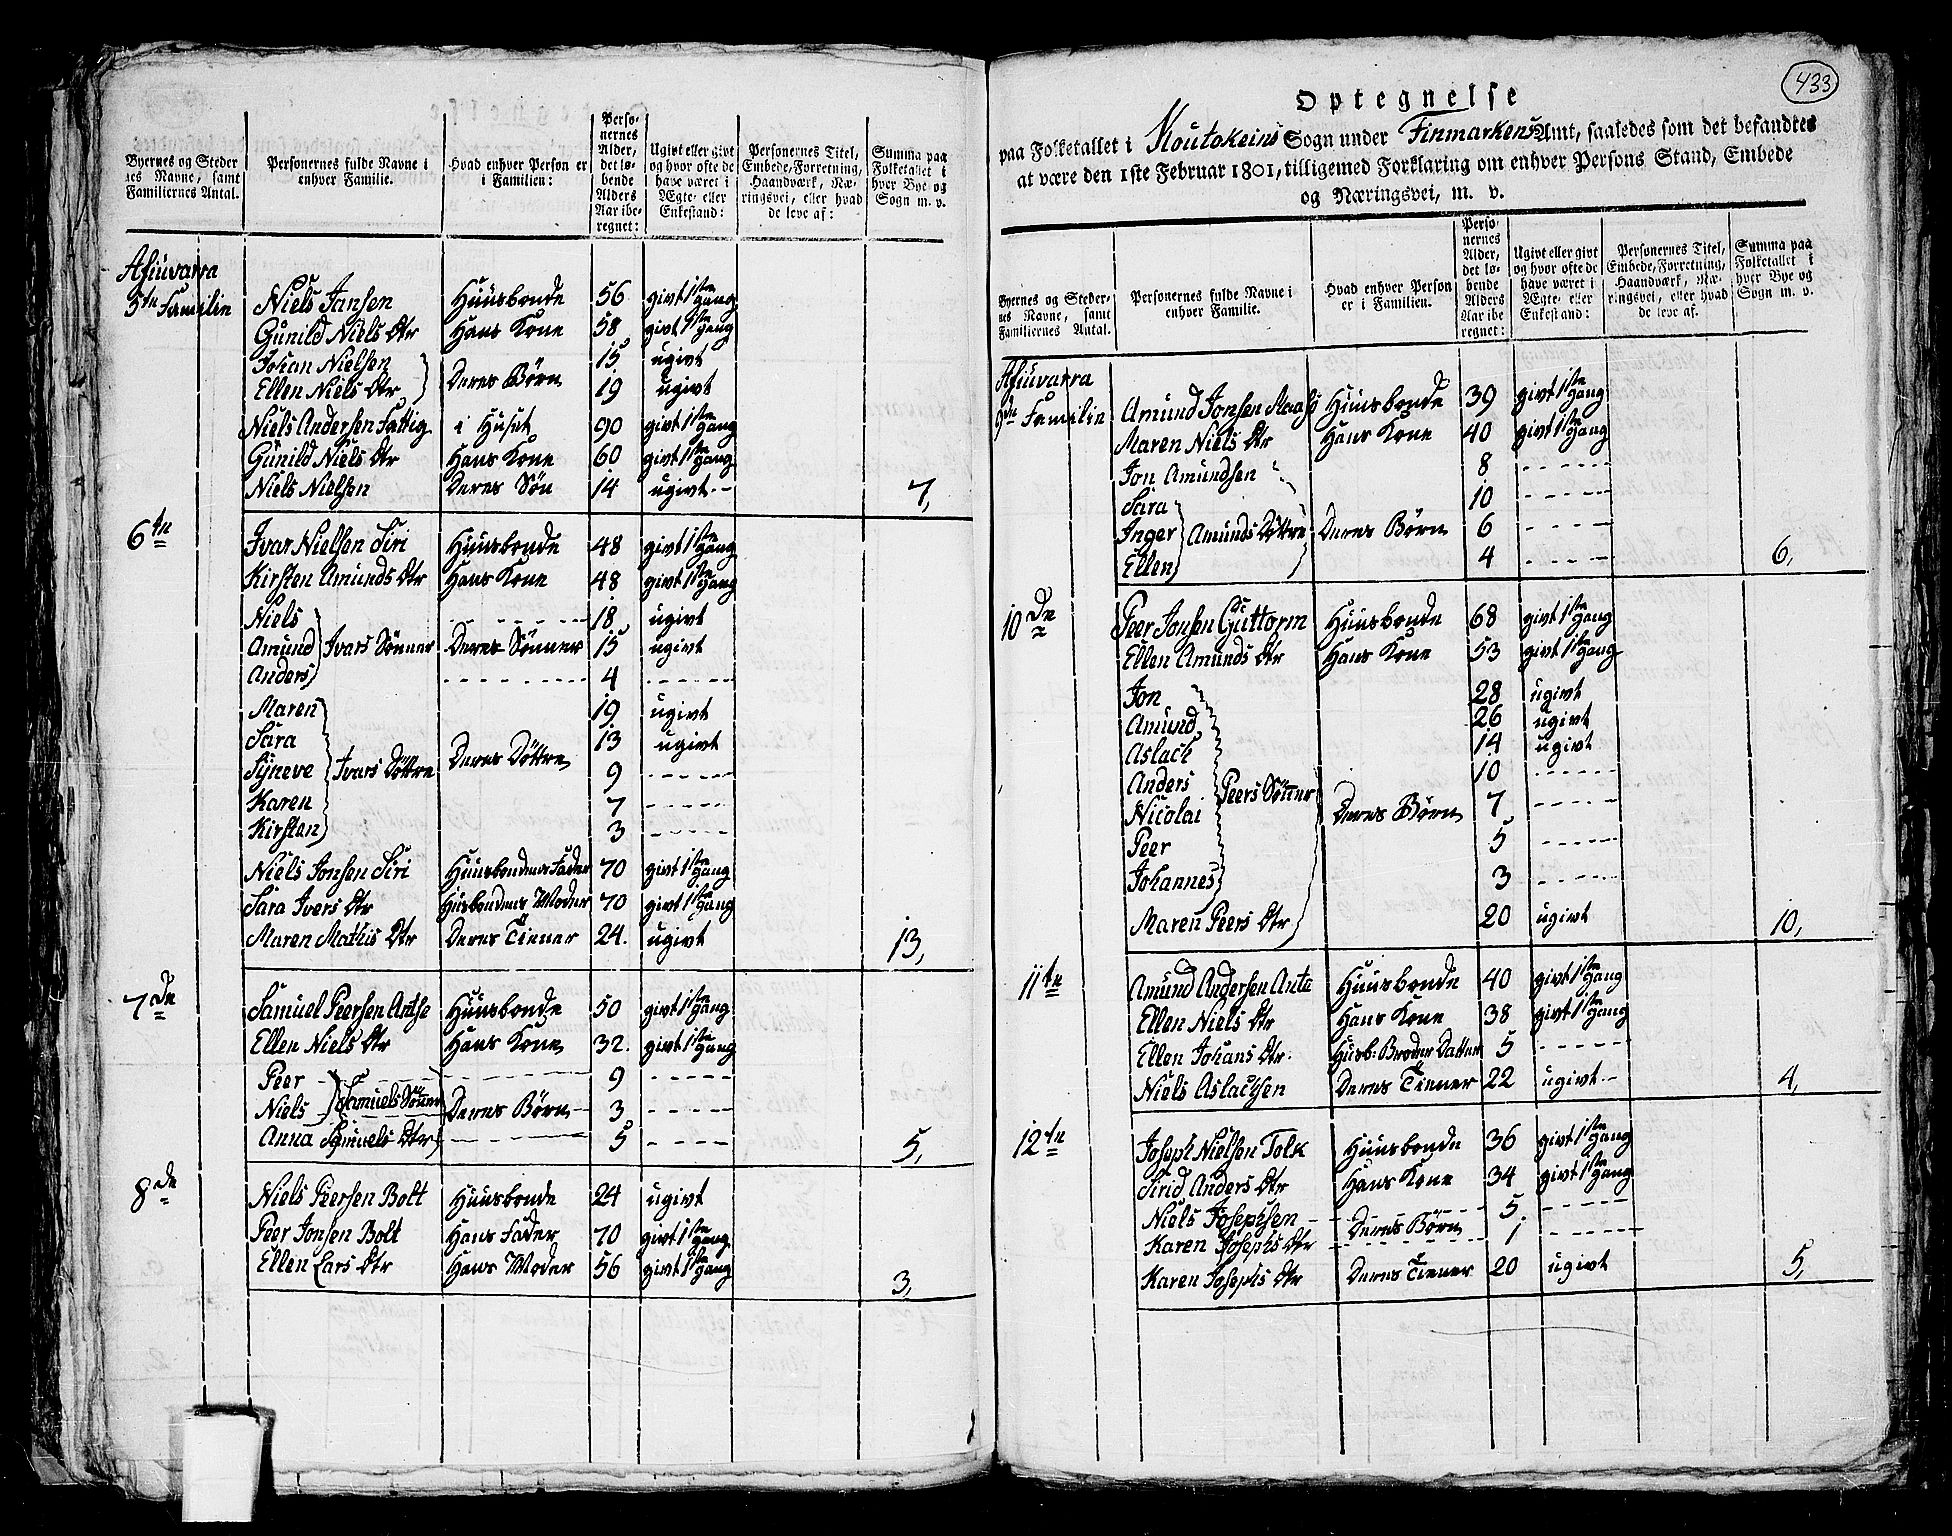 Byernes og Steder
nes Navne, samt
Familiernes Antal.
Personernes fulde Navne i
enhver Familie.
Hvad enhver Person er
i Familien:
Perso-
nernes
Alder,
det lø-
bende
Alders
Aar ibe-
regnet:
Ugivt eller givt
og hvor ofte de
have været i
Ægte- eller
Enkestand:
Personernes Titel,
Embede, Forretning,
Haandværk, Næ-
ringsvei, eller hvad
de leve af:
Summa paa
Folketallet i
hver Bye og
Sogn m. v.
Afiuvarra
5te Familie Niels Jansen Huusbonde 56 givt 1ste gang
Gunild Niels Dtr Hans Kone 58 givt 1ste gang
Johan Nielsen 15 ugivt
Ellen Niels Dtr Deres Börn 19 ugivt
Niels Andersen Fattig i Huset 90 givt 1ste gang
Gunild Niels Dtr Hans Kone 60 givt 1ste gang
Niels Nielsen Deres Sön 14 ugivt 7,
6te Ivar Nielsen Siri Huusbonde 48 givt 1ste gang
Kirsten Amunds Dtr Hans Kone 48 givt 1ste gang
Niels 18 ugivt
Amund Ivars Sönner Deres Sönner 15 ugivt
Anders 4
Maren 19 ugivt
Sara 13 ugivt
Syneve Ivars Döttre Deres Döttre 9
Karen 7
Kirsten 3
Niels Jonsen Siri Huusbondens Fader 70 givt 1ste gang
Sara Ivers Dtr Husbondens Moder 70 givt 1ste gang
Maren Mathis Dtr Deres Tiener 24. ugivt 13,
7de Samuel Peersen Antse Huusbonde 50 givt 1ste gang
Ellen Niels Dtr Hans Kone 32. givt 1ste gang
Peer 9
Niels Samuels Sönner Deres Börn 3
Anna Samuels Dtr 5 5,
8de Niels Peersen Bolt Huusbonde 24 ugivt
Peer Jonsen Bolt Hans Fader 70 givt 1ste gang
Ellen Lars Dtr Hans Moder 56 givt 1ste gang 3,
433
Optegnelse
paa Folketallet i Koutokeins Sogn under Finmarkens Amt, saaledes som det befandtes
at være den 1ste Februar 1801, tilligemed Forklaring om enhver Persons Stand, Embede
og Næringsvei, m. v.
Byernes og Steder-
nes Navne, samt
Familiernes Antal.
Personernes fulde Navne i
enhver Familie.
Hvad enhver Person
er i Familien.
Perso-
nernes
Alder,
det lø-
bende
Alders
Aar ibe
regnet:
Ugivt eller givt
og hvor ofte de
have været i
Ægte- eller
Enkestand:
Personernes Titel,
Embede, Forretning,
Haandværk, Næ-
ringsvei, eller hvad
de leve af.
Summa paa
Folketallet i
hver Bye og
Sogn m. v.
Afiuvarra
9de Familie Amund Jonsen Huusbonde 39 givt 1ste gang
Maren Niels Dtr Hans Kone 40 givt 1ste gang
Jon Amundsen 8
Sara 10
Inger Amunds Döttre Deres Börn 6
Ellen 4 6,
10de Peer Jonsen Guttorm Huusbonde 68 givt 1ste gang
Ellen Amunds Dtr Hans Kone 53 givt 1ste gang
Jon 28 ugivt
Amund 26 ugivt
Aslach 14 ugivt
Anders 10
Nicolai Peers Sönner Deres Börn 7
Peer 5
Johannes 3
Maren Peers Dtr 20 ugivt 10,
11te Amund Andersen Anta Huusbonde 40 givt 1ste gang
Ellen Niels Dtr Hans Kone 38 givt 1ste gang
Ellen Johans Dtr. Husb: Broder Datter 5
Niels Aslachsen Deres Tiener 22 ugivt 4,
12te Joseph Nielsen Tolk Huusbonde 36 givt 1ste gang
Sirid Anders Dtr Hans Kone 34 givt 1ste gang
Niels Josephsen 5.
Karen Josephs Dtr Deres Börn 1
Karen Josephs Dtr Deres Tiener 20 ugivt 5,